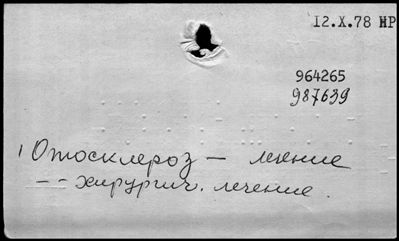 12.X.78 НР
964265
987639
1 Отосклероз — лечение
- - хирургич. лечение.